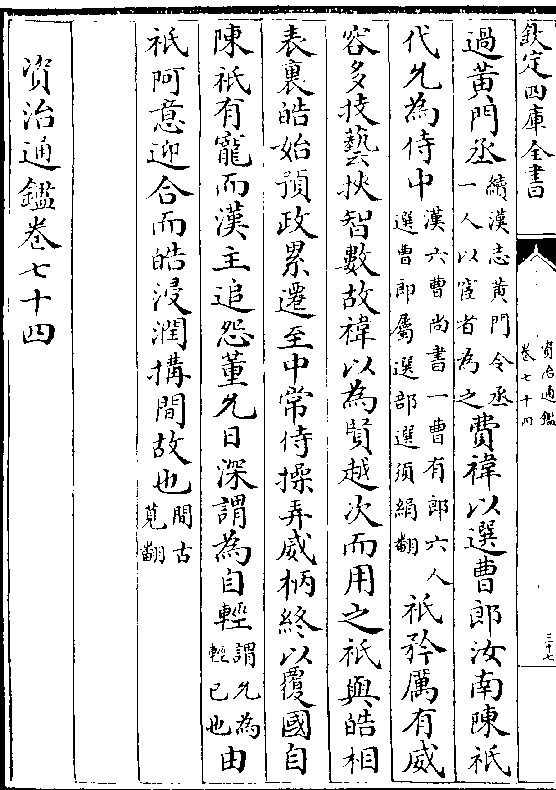 欽定四庫全書
資治通鑑
卷七十四
三十七
過黃門丞續漢志黃門令丞一人以宦者為之費禕以選曹郎汝南陳祇
代允為侍中漢六曹尚書一曹有郎六人選曹郎屬選部選須絹翻祇矜厲有威
容多技藝挾智數故禕以為賢越次而用之祇與皓相
表裏皓始預政累遷至中常侍操弄威柄終以覆國自
陳祇有寵而漢主追怨董允日深謂為自輕謂允為輕已也由
祇阿意迎合而皓浸潤搆間故也間古莧翻
資治通鑑卷七十四